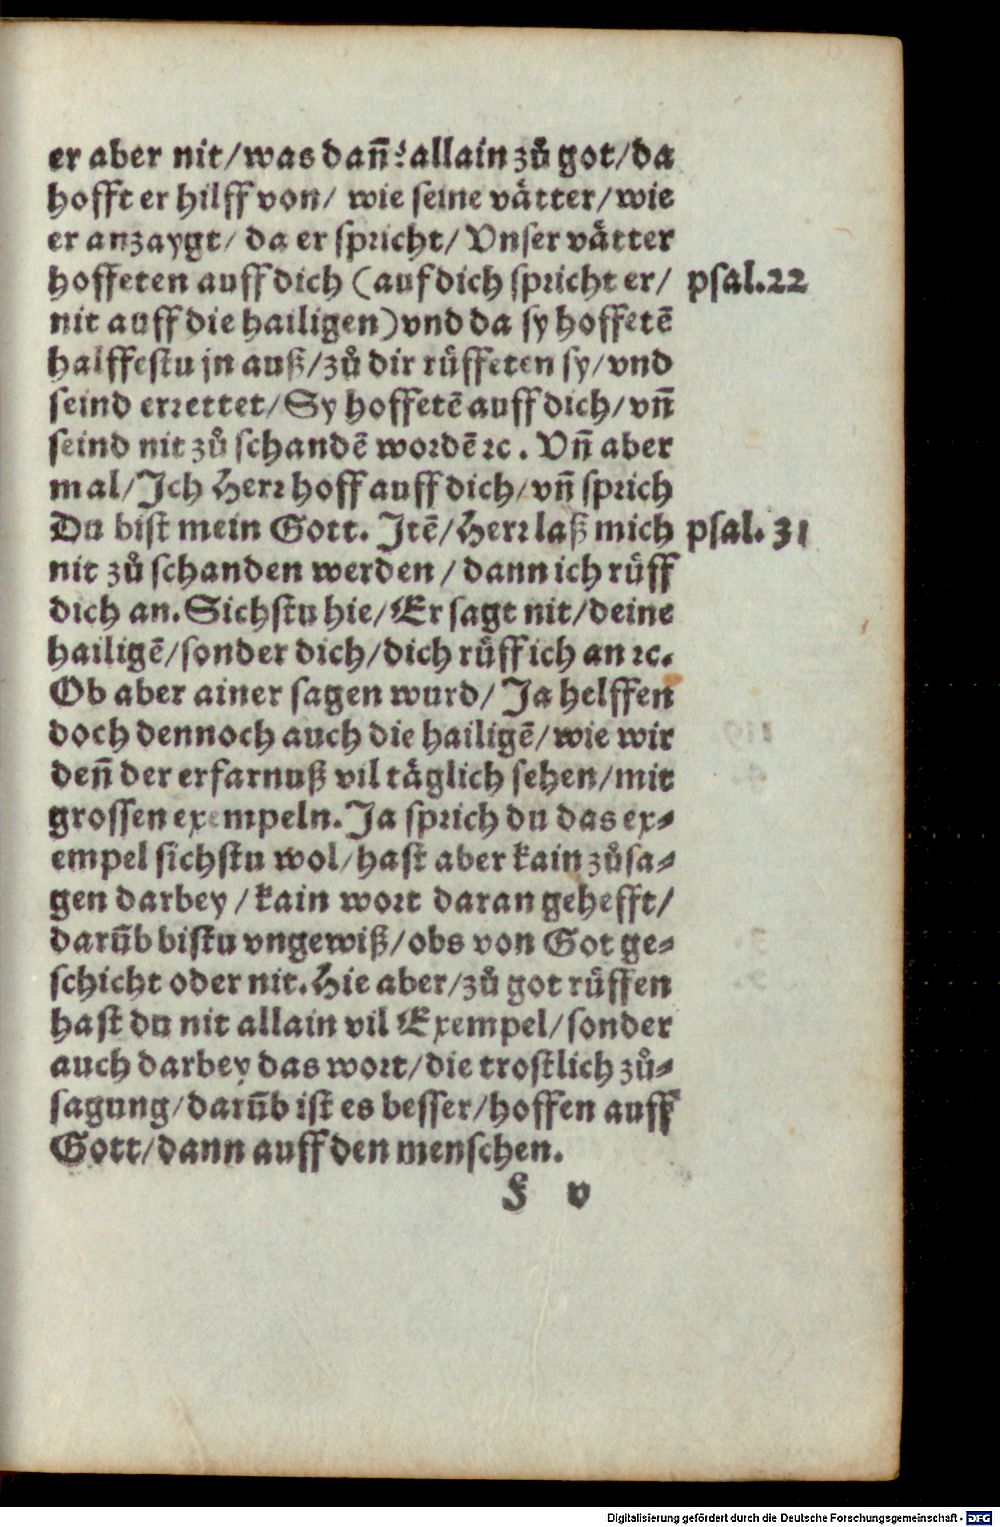 er aber nit/was dañ? allain zů got/da
hofft er hilff von/ wie seine vätter/wie
er anzaygt/ da er spricht/ Vnser vätter
hoffeten auff dich (auf dich spricht er/ psal.22
nit auff die hailigen) vnd da sy hoffetē
halffestu jn auß/zů dir rüffeten sy/vnd
seind errettet/Sy hoffetē auff dich/vñ
seind nit zů schandē wordē ꝛc. Vñ aber
mal/Ich Herr hoff auff dich/vñ sprich
Du bist mein Gott. Itē/Herr laß mich psal. 31
nit zů schanden werden/dann ich rüff
dich an. Sichstu hie/Er sagt nit/deine
hailigē/sonder dich/dich rüff ich an ꝛc.
Ob aber ainer sagen wurd/ Ja helffen
doch dennoch auch die hailigē/wie wir
deñ der erfarnuß vil täglich sehen/mit
grossen exempeln. Ja sprich du das ex⸗
empel sichstu wol/hast aber kain zůsa⸗
gen darbey/kain wort daran gehefft/
darūb bistu vngewiß/obs von Got ge⸗
schicht oder nit. Hie aber/zů got rüffen
hast du nit allain vil Exempel/sonder
auch darbey das wort/die trostlich zů⸗
sagung/darūb ist es besser/hoffen auff
Gott/dann auff den menschen.
F v
Digitalisierung gefördert durch die Deutsche Forschungsgemeinschaft - DFG